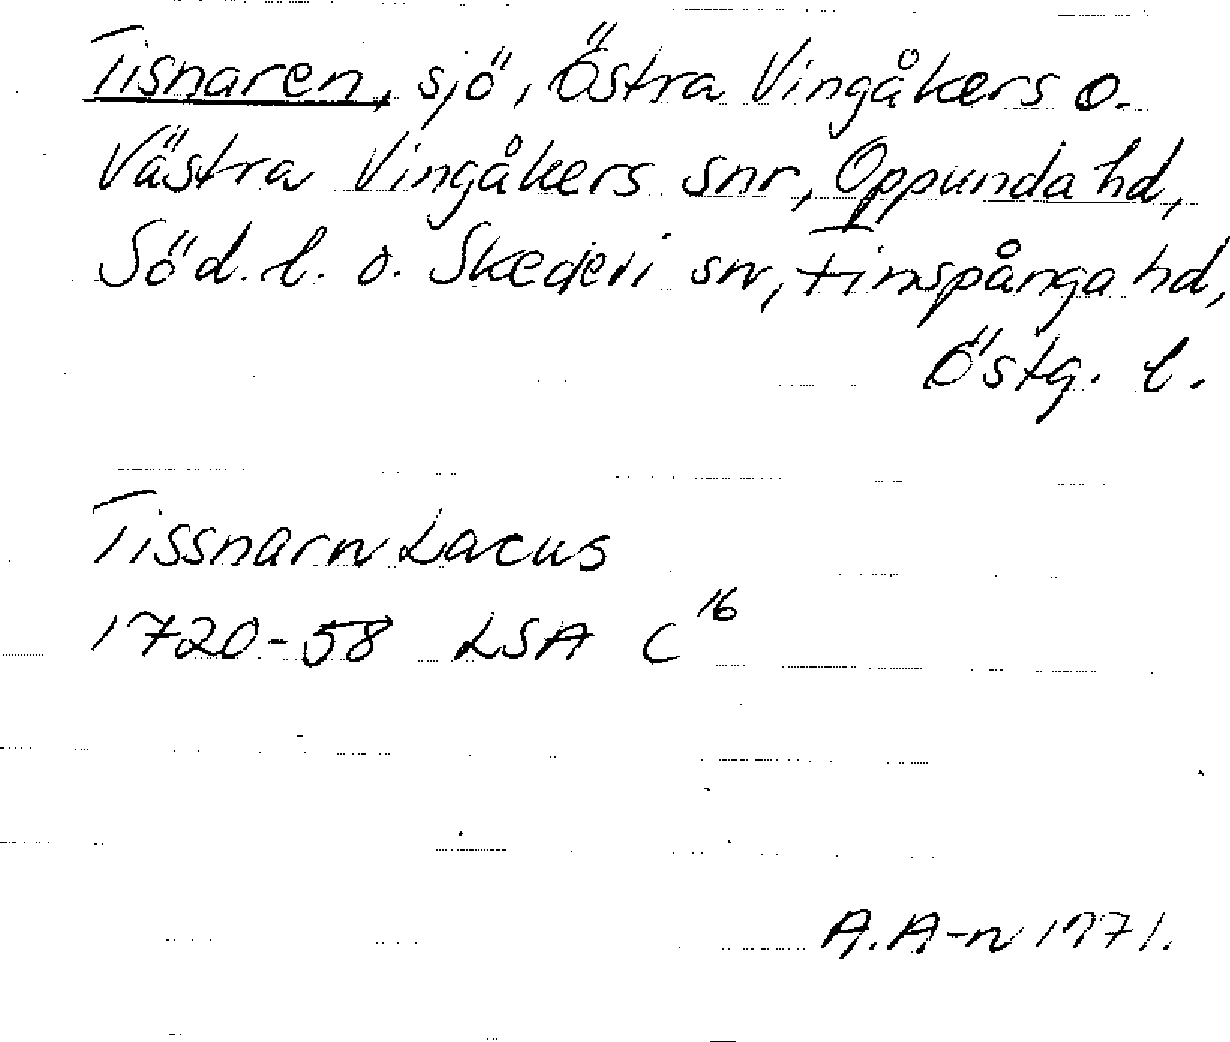 Tisnaren, sjö, Östra Vingåkers o.
Västra Vingåkers snr, Oppunda hd,
Söd. l. o. Skedevi sn, Finspånga hd,
Östg. l.
Tissnarn Lacus
1720-58 LSA C16
A. A-n 1971.